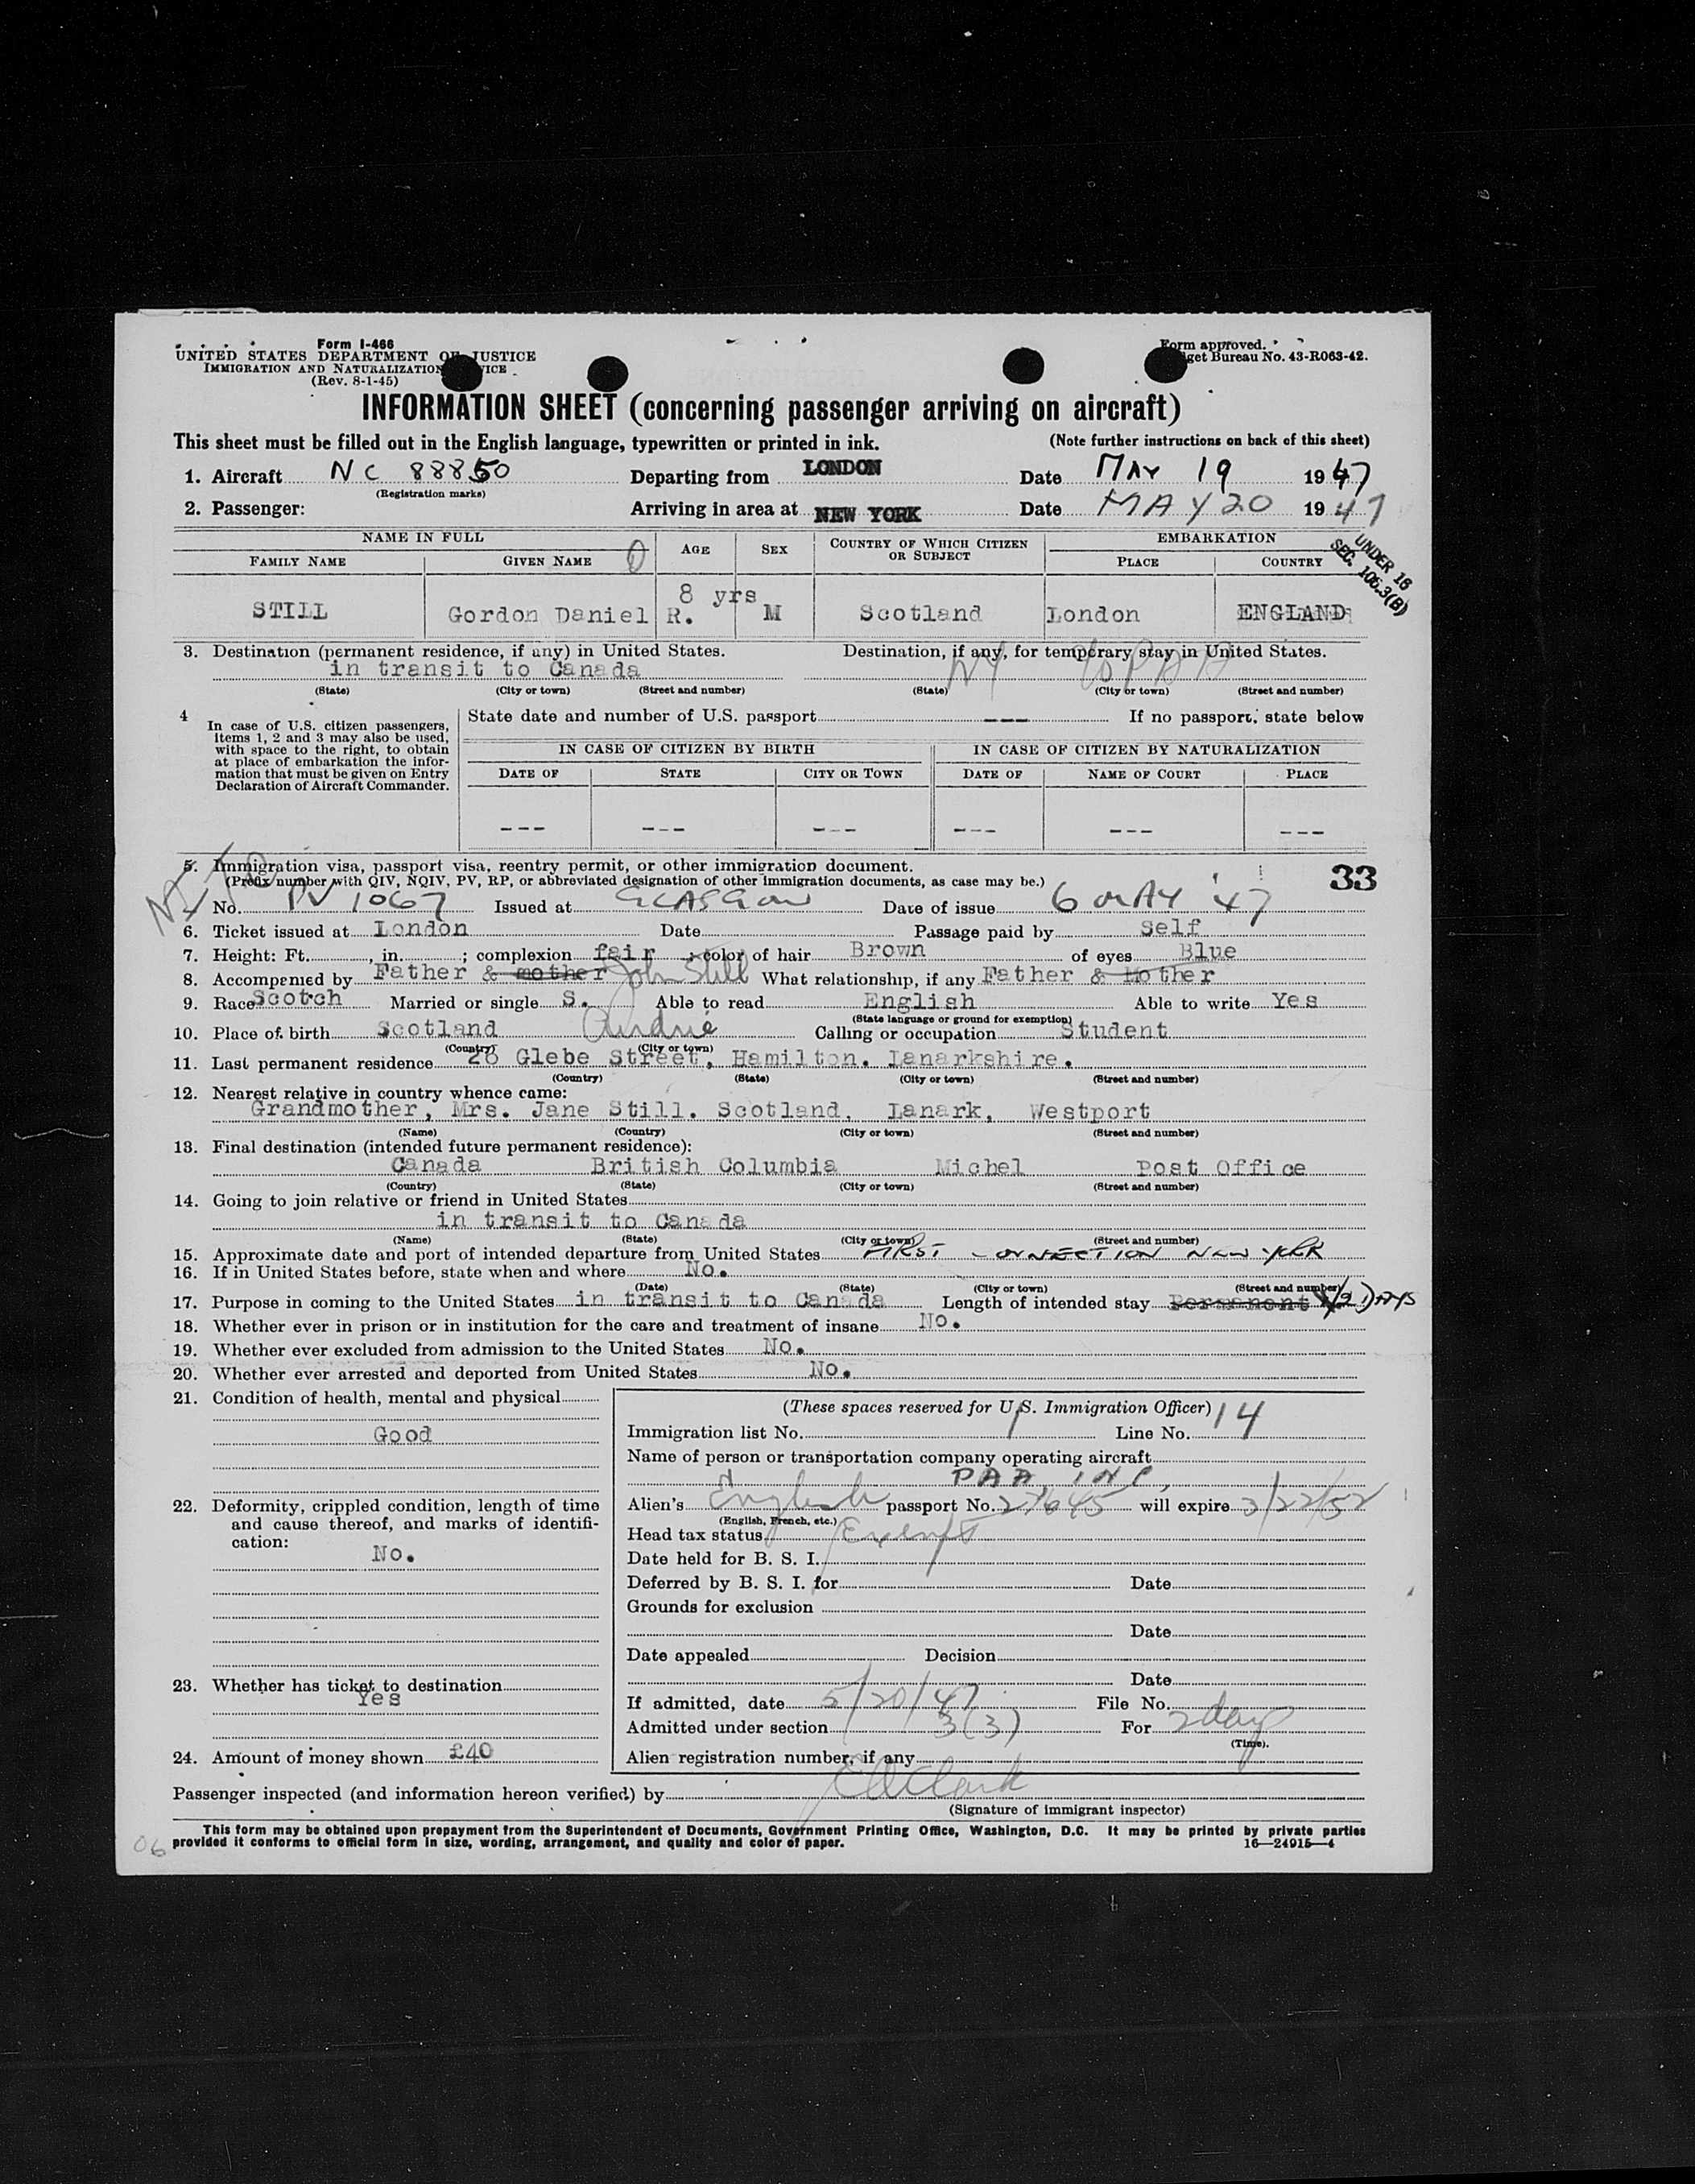 Form I-466
UNITED STATES DEPARTMENT OF JUSTICE
IMMIGRATION AND NATURALIZATION VICE
(Rev. 8-1-45)
Form approved.
get Bureau No. 43-R063-42.
INFORMATION SHEET (concerning passenger arriving on aircraft)
This sheet must be filled out in the English language, typewritten or printed in ink. (Note further instructions on back of this sheet)
1. Aircraft NC 88850 Departing from LONDON Date MAY 19 1947
(Registration marks)
2. Passenger: Arriving in area at NEW YORK Date MAY 20 1947
NAME IN FULL AGE SEX COUNTRY OF WHICH CITIZEN OR SUBJECT EMBARKATION
FAMILY NAME GIVEN NAME PLACE COUNTRY
UNDER 16
SEC. 106.3(B)
STILL Gordon Daniel R. 8 yrs M Scotland London ENGLAND
3. Destination (permanent residence, if any) in United States. Destination, if any, for temporary stay in United States.
in transit to Canada NY
(State) (City or town) (Street and number) (State) (City or town) (Street and number)
4 In case of U.S. citizen passengers, items 1, 2 and 3 may also be used, with space to the right, to obtain at place of embarkation the information that must be given on Entry Declaration of Aircraft Commander.
State date and number of U.S. passport --- If no passport, state below
IN CASE OF CITIZEN BY BIRTH IN CASE OF CITIZEN BY NATURALIZATION
DATE OF STATE CITY OR TOWN DATE OF NAME OF COURT PLACE
--- --- --- --- --- ---
5. Immigration visa, passport visa, reentry permit, or other immigration document. 33
(Prefix number with QIV, NQIV, PV, RP, or abbreviated designation of other immigration documents, as case may be.)
No. PV 1067 Issued at GLASGOW Date of issue 6 MAY '47
6. Ticket issued at London Date Passage paid by Self
7. Height: Ft. , in. ; complexion fair ; color of hair Brown of eyes Blue
8. Accompanied by Father & mother John Still What relationship, if any Father & Mother
9. Race Scotch Married or single S. Able to read English Able to write Yes
(State language or ground for exemption)
10. Place of birth Scotland Airdrie Calling or occupation Student
(Country) (City or town)
11. Last permanent residence 28 Glebe Street, Hamilton. Lanarkshire.
(Country) (State) (City or town) (Street and number)
12. Nearest relative in country whence came:
Grandmother, Mrs. Jane Still. Scotland, Lanark, Westport
(Name) (Country) (City or town) (Street and number)
13. Final destination (intended future permanent residence):
Canada British Columbia Michel Post Office
(Country) (State) (City or town) (Street and number)
14. Going to join relative or friend in United States
in transit to Canada
(Name) (State) (City or town) (Street and number)
15. Approximate date and port of intended departure from United States FIRST CONNECTION NEW YORK
16. If in United States before, state when and where No.
(Date) (State) (City or town) (Street and number)
17. Purpose in coming to the United States in transit to Canada Length of intended stay Permanent 2 DAYS
18. Whether ever in prison or in institution for the care and treatment of insane No.
19. Whether ever excluded from admission to the United States No.
20. Whether ever arrested and deported from United States No.
21. Condition of health, mental and physical
Good
22. Deformity, crippled condition, length of time and cause thereof, and marks of identification:
No.
23. Whether has ticket to destination
Yes
24. Amount of money shown £40
(These spaces reserved for U.S. Immigration Officer)
Immigration list No. 1 Line No. 14
Name of person or transportation company operating aircraft
PAA, INC,
Alien's English passport No. 27645 will expire 3/22/52
(English, French, etc.)
Head tax status Exempt
Date held for B. S. I.
Deferred by B. S. I. for Date
Grounds for exclusion
Date
Date appealed Decision
Date
If admitted, date 5/20/47 File No.
Admitted under section 3(3) For 2 days
(Time).
Alien registration number, if any
Passenger inspected (and information hereon verified) by E A Clark
(Signature of immigrant inspector)
This form may be obtained upon prepayment from the Superintendent of Documents, Government Printing Office, Washington, D.C. It may be printed by private parties
provided it conforms to official form in size, wording, arrangement, and quality and color of paper. 16—24915-4
06